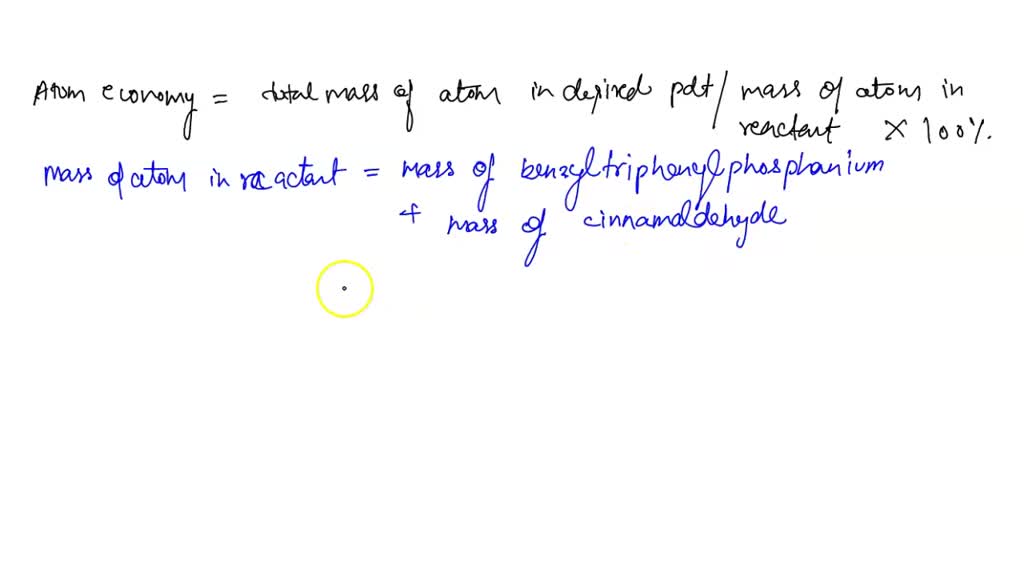 Atom economy = total mass of atom in desired pdt / mass of atom in
reactant × 100%.
mass of atom in reactant = mass of benzyltriphenylphosphanium
+ mass of cinnamaldehyde